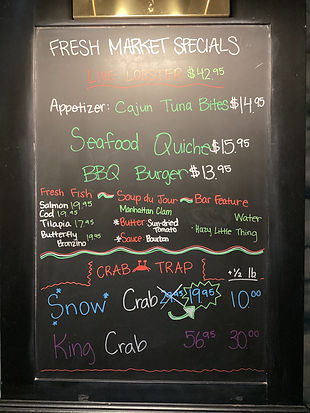 FRESH MARKET SPECIALS
LIVE LOBSTER $42.95
Appetizer: Cajun Tuna Bites $14.95
Seafood Quiche $15.95
BBQ Burger $13.95
Fresh Fish
Salmon 19.95
Cod 19.95
Tilapia 17.95
Butterfly Bronzino 19.95
Soup du Jour
Manhattan Clam
*Butter Sun-dried Tomato
*Sauce Bourbon
Bar Feature
Water
Hazy Little Thing
CRAB TRAP
+½ lb
Snow Crab 19.95 10.00
King Crab 56.95 30.00